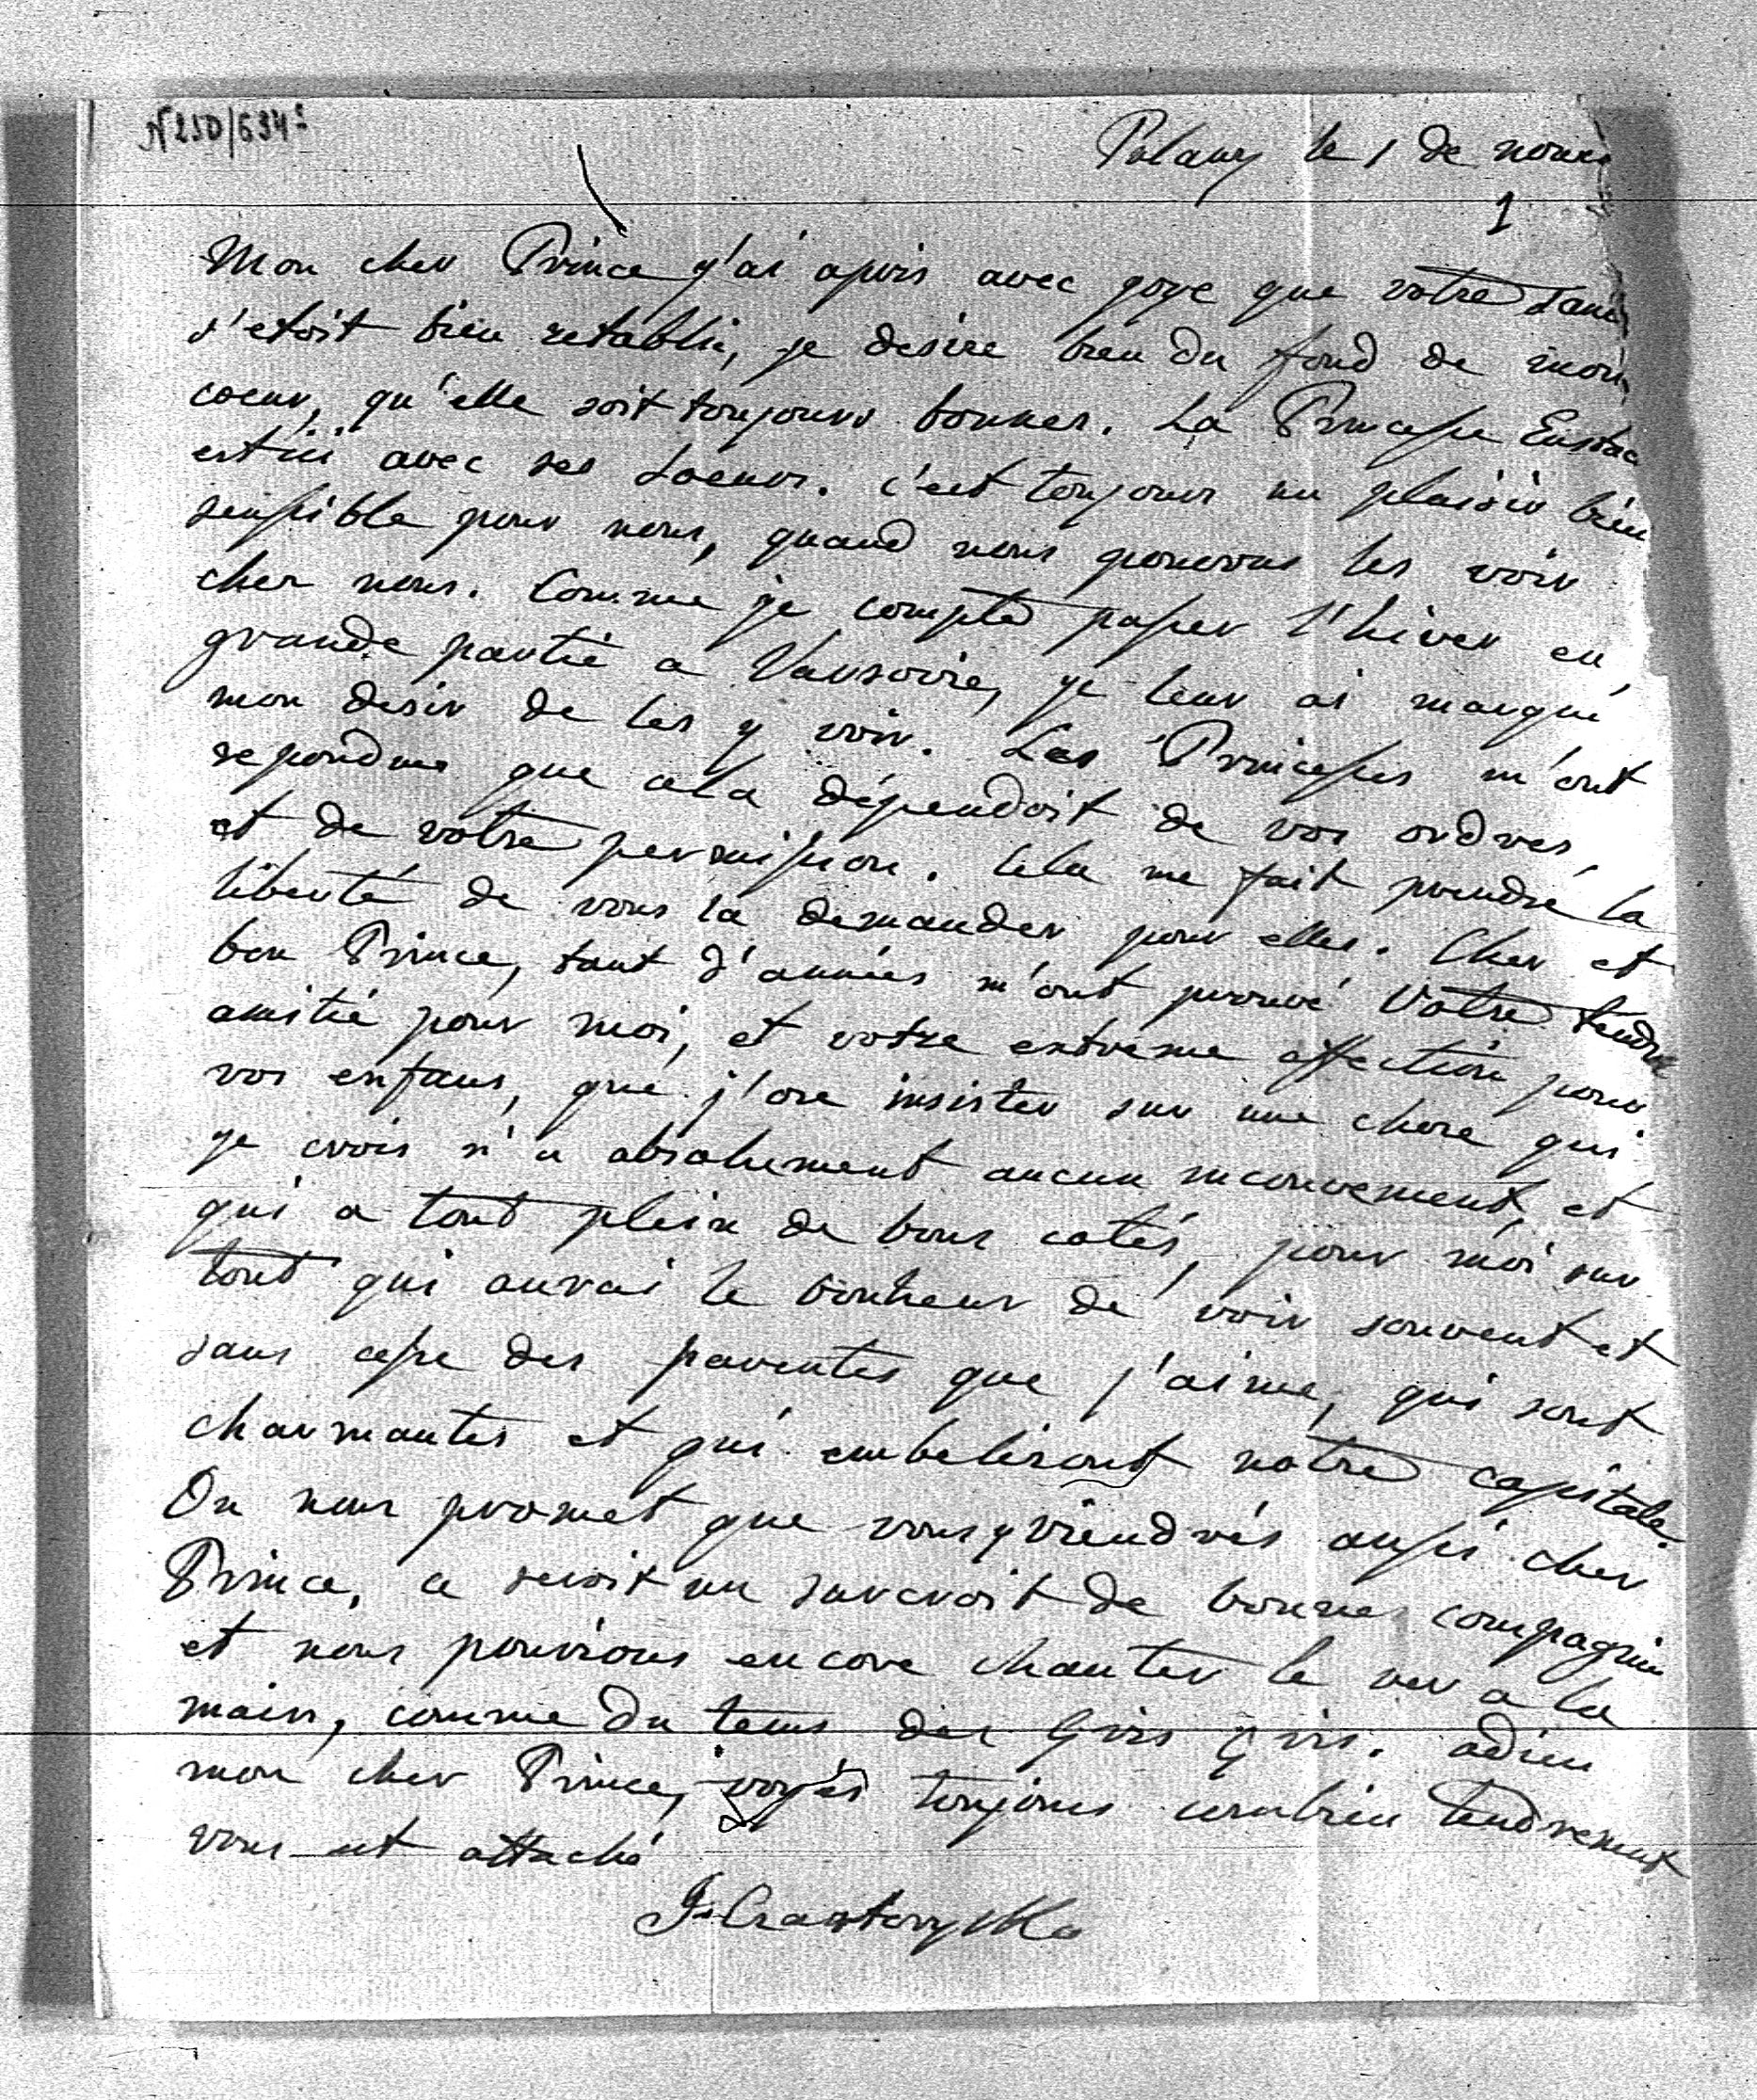 N 250/634
Pulawy le 1 de nove
1
Mon cher Prince j'ai apris avec joye que votre sante
s'etoit bien retablie, je desire bien du fond de mon
coeur, qu'elle soit toujours bonne. La Princesse Eustac
est ici avec ses soeurs. c'est toujours un plaisir bien
sensible pour nous, quand nous pouvons les voir
chez nous. Comme je compte passer l'hiver en
grande partie a Varsovie, je leur ai marqué
mon desir de les y voir. Les Princesses m'ont
repondues que cela dépendoit de vos ordres,
et de votre permission. Cela me fait prendre la
liberté de vous la demander pour elles. Cher et
bon Prince, tant d'années m'ont prouvé Votre tendre
amitié pour moi, et votre extreme affection pour
vos enfans, que j'ose insister sur une chose qui
je crois n'a absolument aucun inconvenient, et
qui a tout plein de bons cotés, pour moi sur
tout qui aurai le bonheur de voir souvent et
sans cesse des parentes que j'aime, qui sont
charmantes et qui embeliront notre capitale.
On nous promet que vous y viendrés aussi cher
Prince, ce seroit un surcroit de bonne compagnie
et nous pourrions encore chanter le ver a la
main, comme du tems des Gris Gris. adieu
mon cher Prince, voyés toujours combien tendrement
vous est attaché
J. Czartoryska